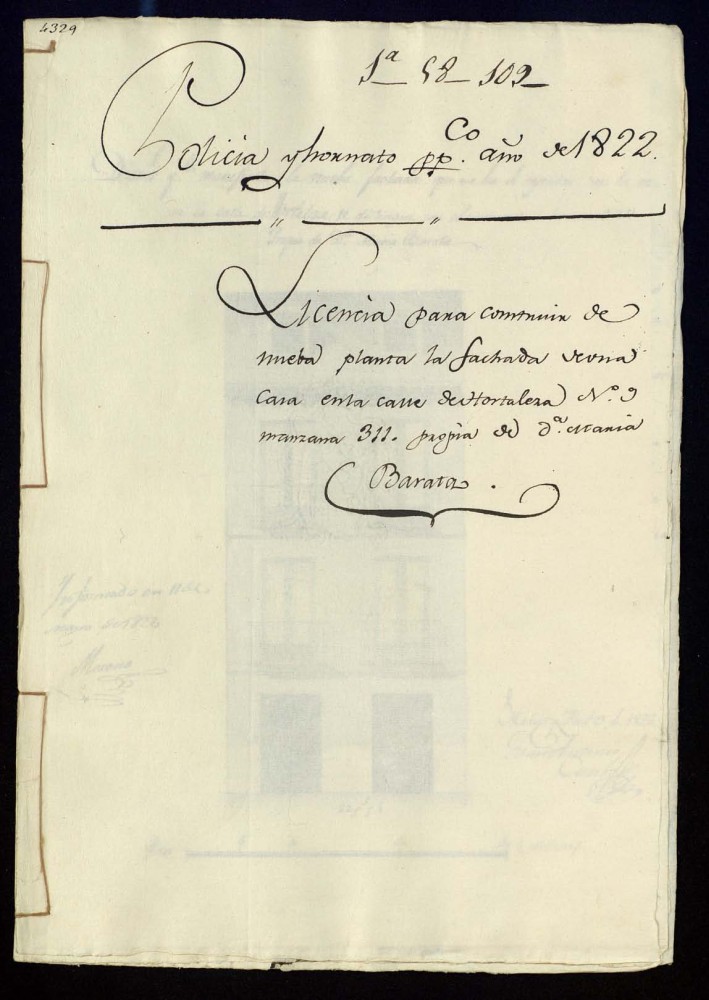 4329
1ª 58-109
Policia y hornato pp.co año de 1822.
Licencia para construir de
nueba planta la fachada de una
Casa en la calle de Hortaleza N.º 9
manzana 311. propia de d.ª Maria
Barata.
Informado en
Mayo de 1822
Moreno